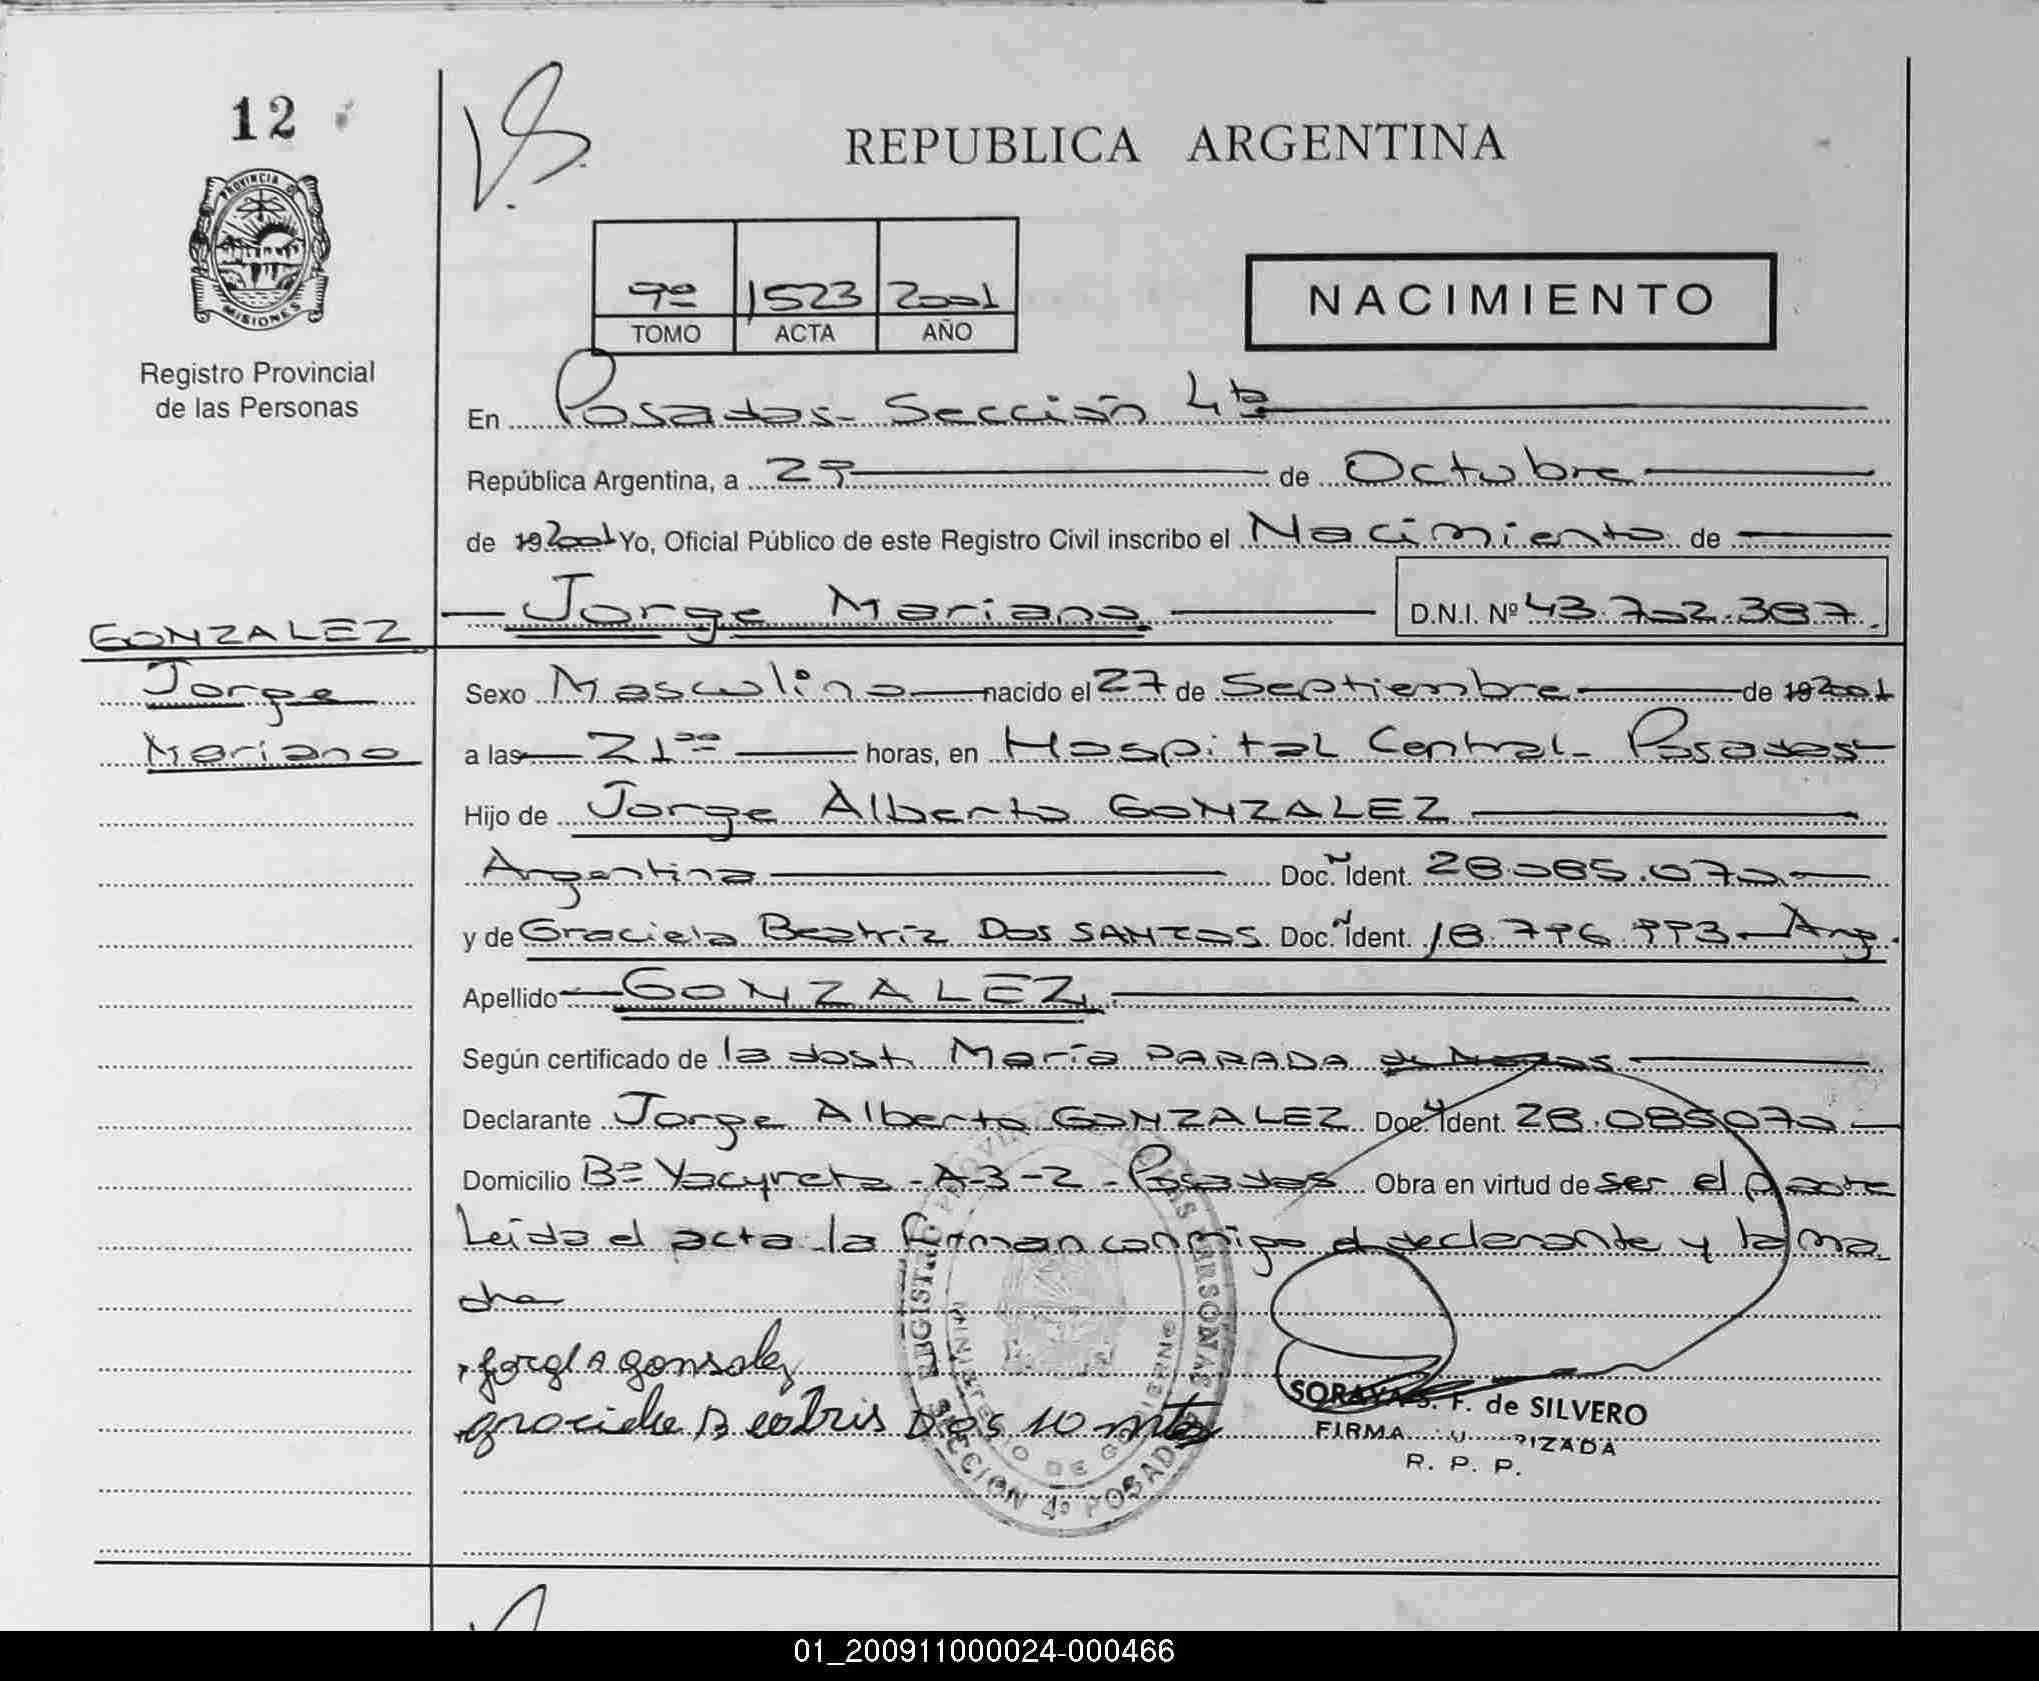 12
REPUBLICA ARGENTINA
PROVINCIA DE
MISIONES
Registro Provincial
de las Personas
9º 1523 2001
TOMO ACTA AÑO
NACIMIENTO
En Posadas - Sección 4ta
República Argentina, a 29 de Octubre
de 19 2001 Yo, Oficial Público de este Registro Civil inscribo el Nacimiento de
Jorge Mariano D.N.I. Nº 43.702.387.
GONZALEZ
Jorge
Mariano
Sexo Masculino nacido el 27 de Septiembre de 19 2001
a las 21 00 horas, en Hospital Central - Posadas
Hijo de Jorge Alberto GONZALEZ
Argentina Doc. Ident. 28.085.070
y de Graciela Beatríz DOS SANTOS Doc. Ident. 18.796.993 - Arg.
Apellido GONZALEZ
Según certificado de la María PARADA
Declarante Jorge Alberto GONZALEZ Doc. Ident. 28.085070
Domicilio Bº Yacyreta - A-3-2 - Posadas Obra en virtud de ser el padre
Leida el acta la firman conmigo el declarante y la ma
dre
Jorge A gonsalez
graciela Beatris Dos santos
REGISTRO PROVINCIAL DE LAS PERSONAS
MINISTERIO DE GOBIERNO
SECCION 4º POSADAS
SORAYA S. F. de SILVERO
FIRMA
R. P. P.
01_200911000024-000466